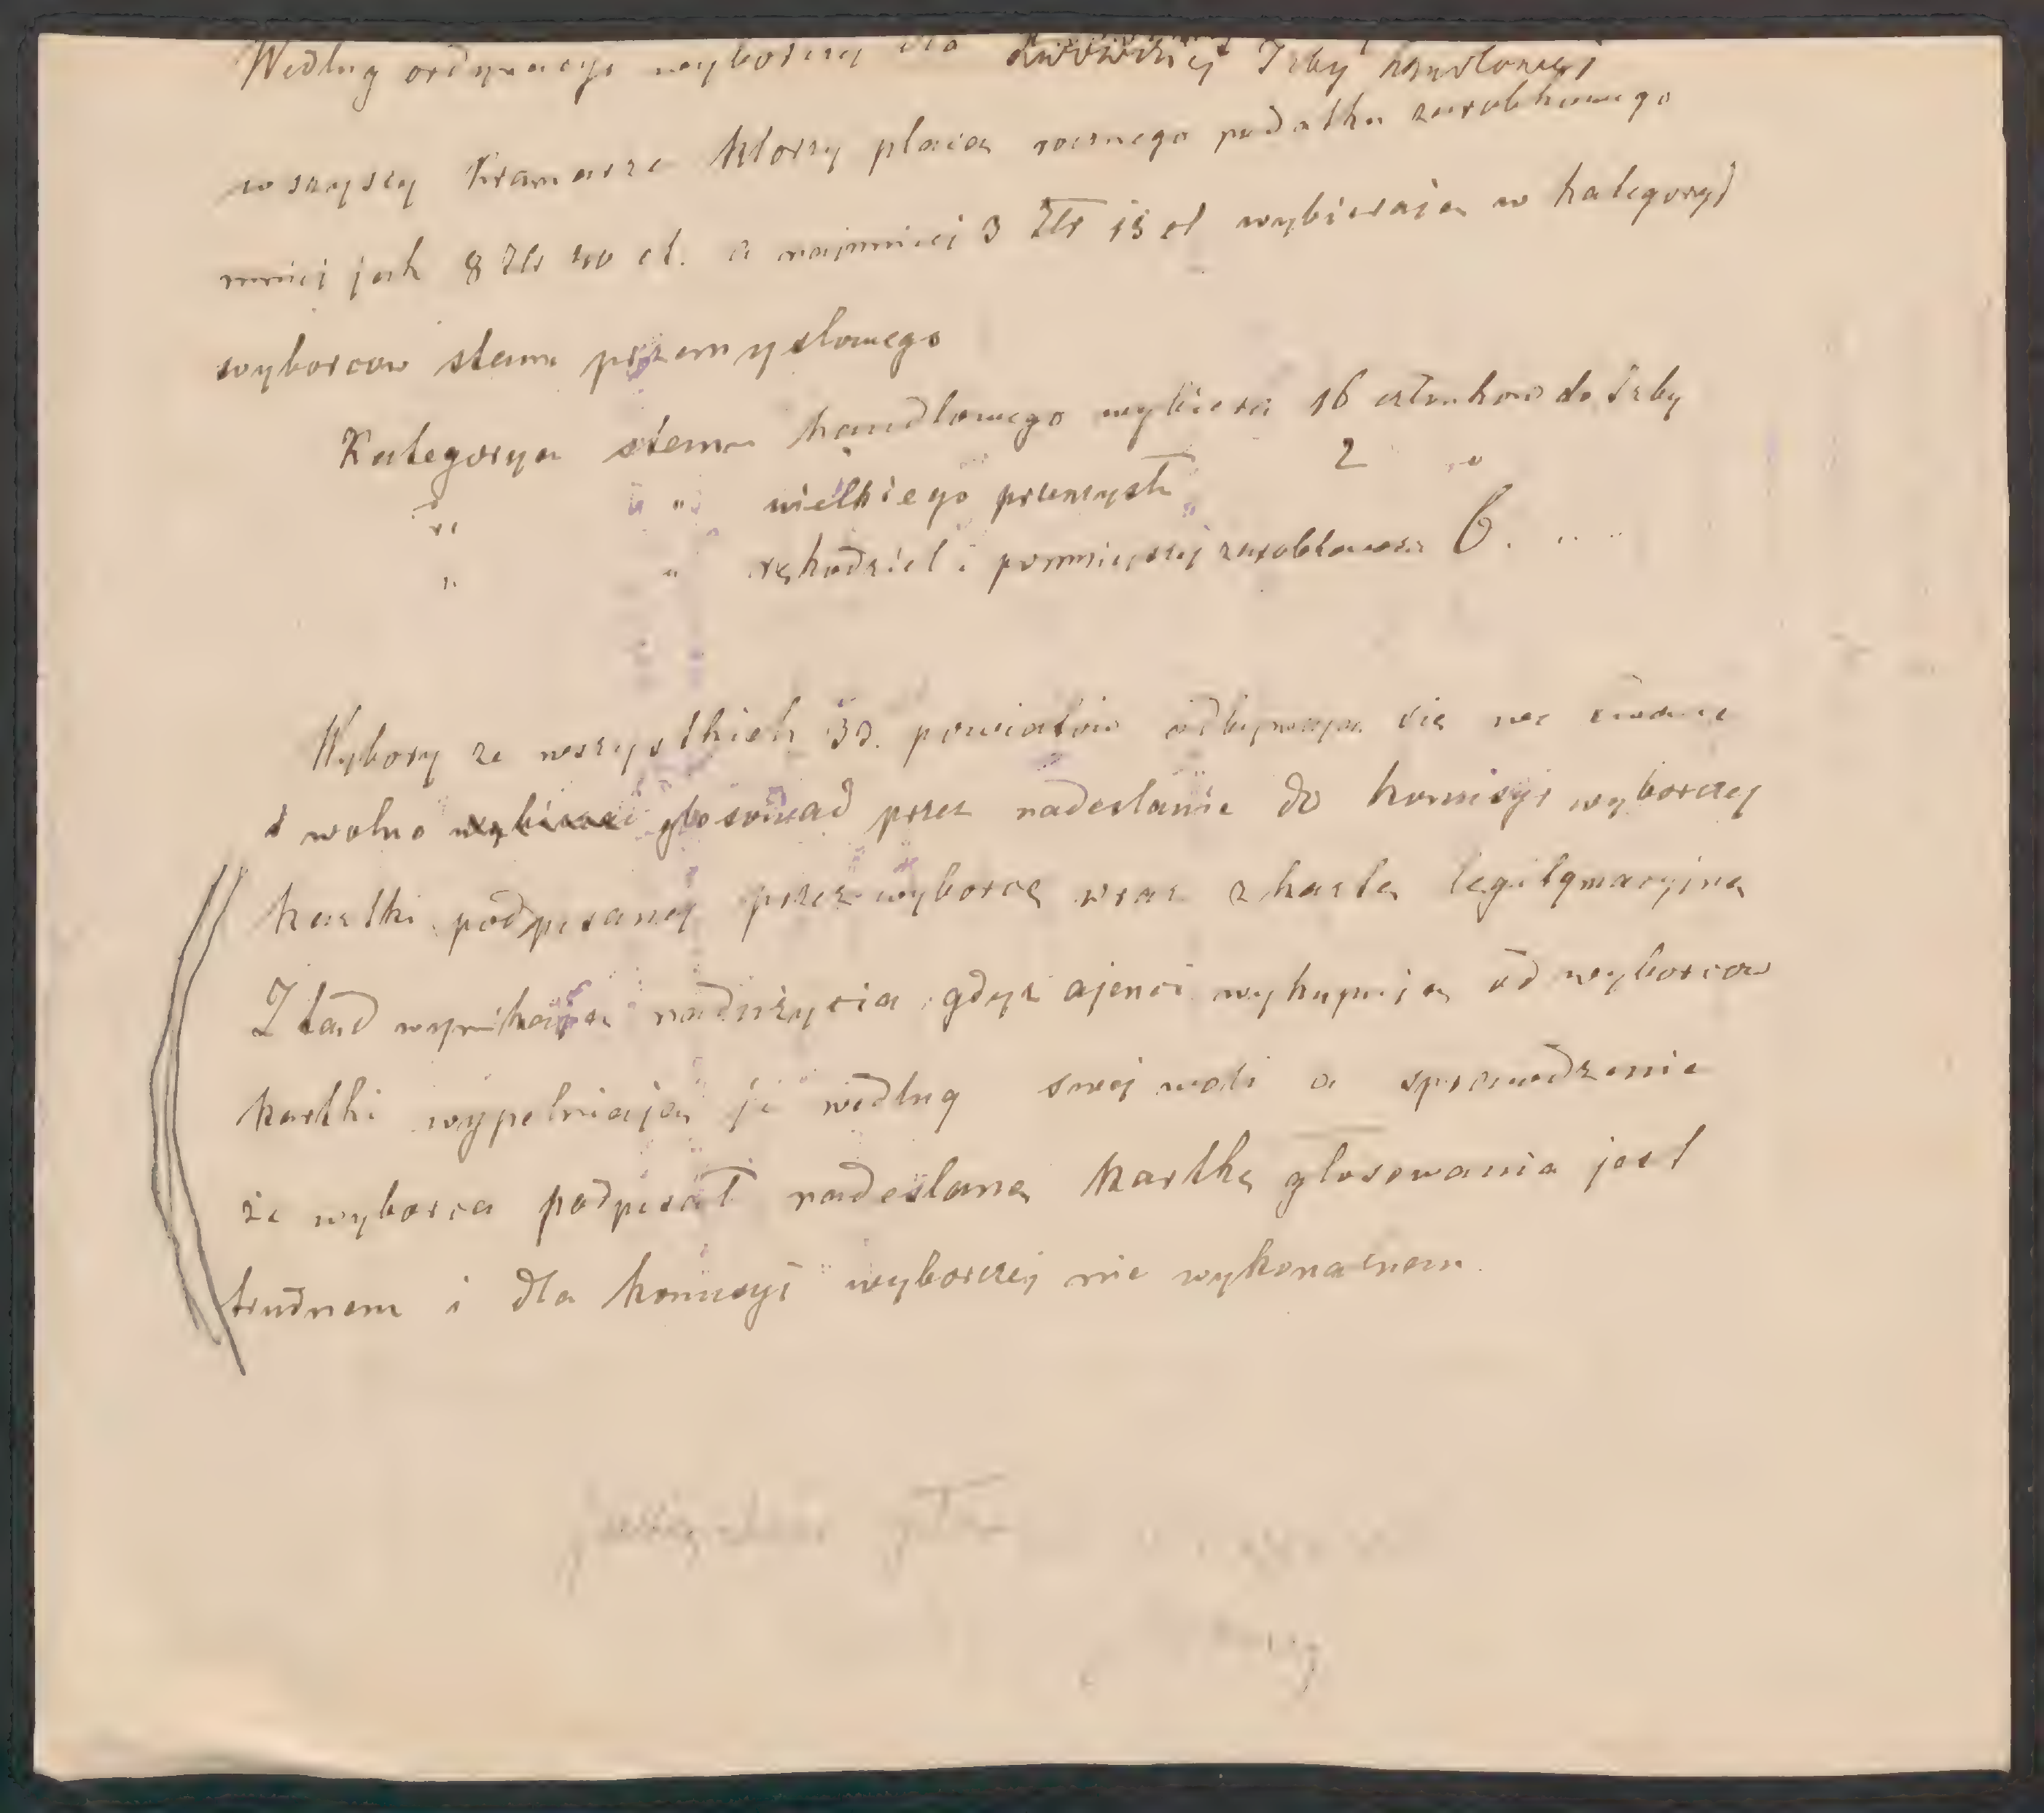 Według ordynacyi wyborczej dla Lwowskiej Izby handlowej
wszyscy Kramarze którzy płacą rocznego podatku zarobkowego
mniej jak 8 Złr 40 ct. a najmniej 3 Złr 15 ct wybierają w kategoryi
wyborców stanu przemysłowego
Kategorya stanu handlowego wybiera 16 członków do Izby
" " " wielkiego przemysłu 2 "
" " rękodzieł i pomniejszej zarobkowości 6. " "
Wybory ze wszystkich 30. powiatów odbywają się we Lwowie
i wolno wybierać głosować przez nadesłanie do komisyi wyborczej
kartki podpisanej przez wyborcę wraz z kartą legitymacyjną
Ztąd wynikają nadużycia gdyż ajenci wykupują od wyborców
kartki wypełniają je według swej woli a sprawdzenie
że wyborca podpisał nadesłaną kartkę głosowania jest
trudnem i dla komisyi wyborczej nie wykonalnem.